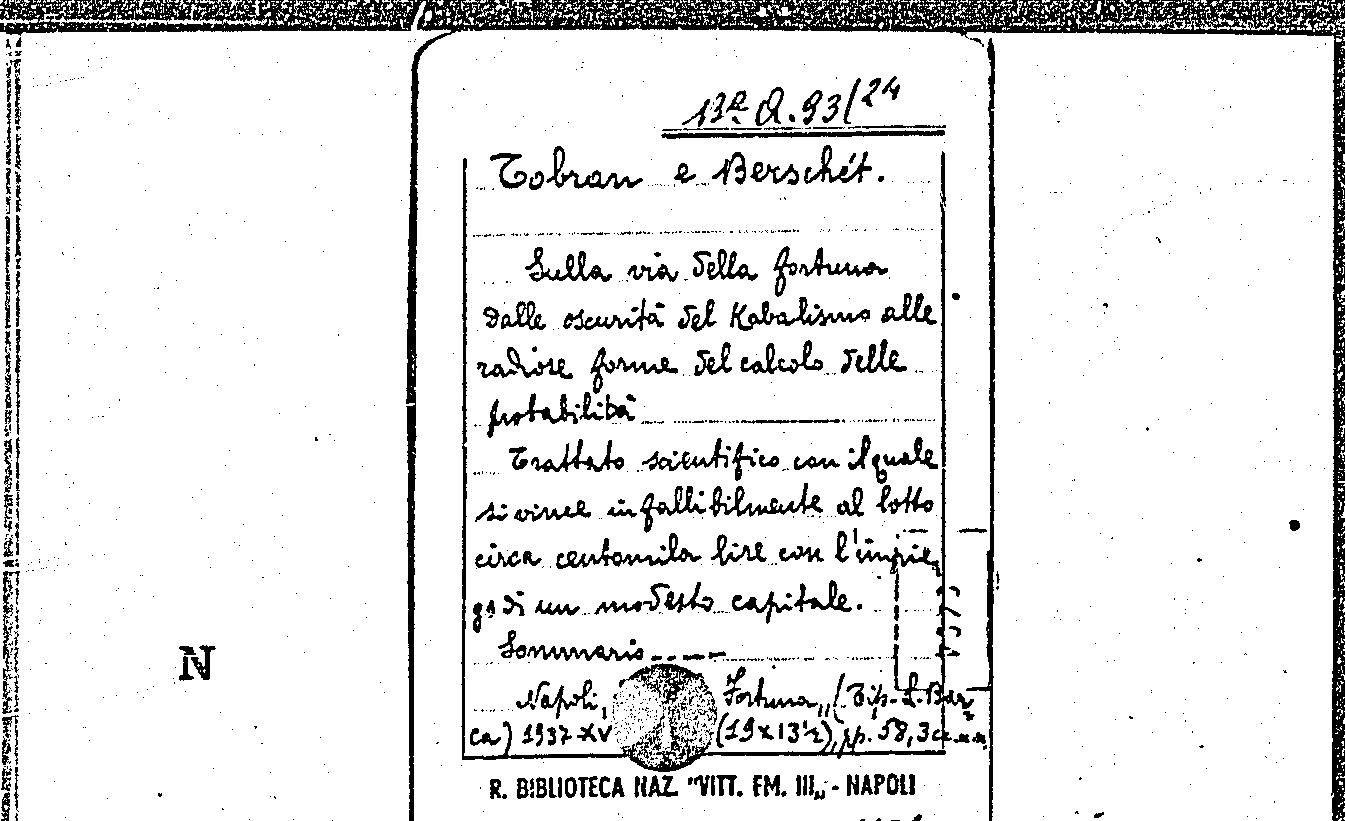 13ª Q. 93/24
Tobran e Berschét.
Sulla via della fortuna
dalle oscurità del Kabalismo alle
radiose forme del calcolo delle
probabilità
Trattato scientifico con il quale
si vince infallibilmente al lotto
circa centomila lire con l'impie
go di un modesto capitale.
Sommario
N
Napoli, Fortuna„ (Tip. L. Bar
ca) 1937-XV (19x13½), pp. 58, 3
R. BIBLIOTECA NAZ. "VITT. EM. III„ - NAPOLI